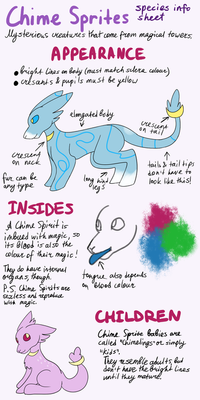 Chime Sprites
species info
sheet
Mysterious creatures that come from magical towers.
APPEARANCE
• Bright Lines on Body (must match sclera colour)
• cresants & pupils must be yellow
elongated Body
crescent
on tail
crescent
on neck
fur can be
any type
long hind
legs
tails & tail tips
don't have to
look like this!
INSIDES
A Chime Spirit is
imbued with magic, so
its blood is also the
colour of their magic!
They do have internal
organs, though.
P.S. Chime Spirits are
sexless and reproduce
with magic.
tongue also depends
on blood colour
CHILDREN
Chime Sprite Babies are
called "Chimelings" or simply
"kids".
They resemble adults, but
don't have the bright lines
until they mature.